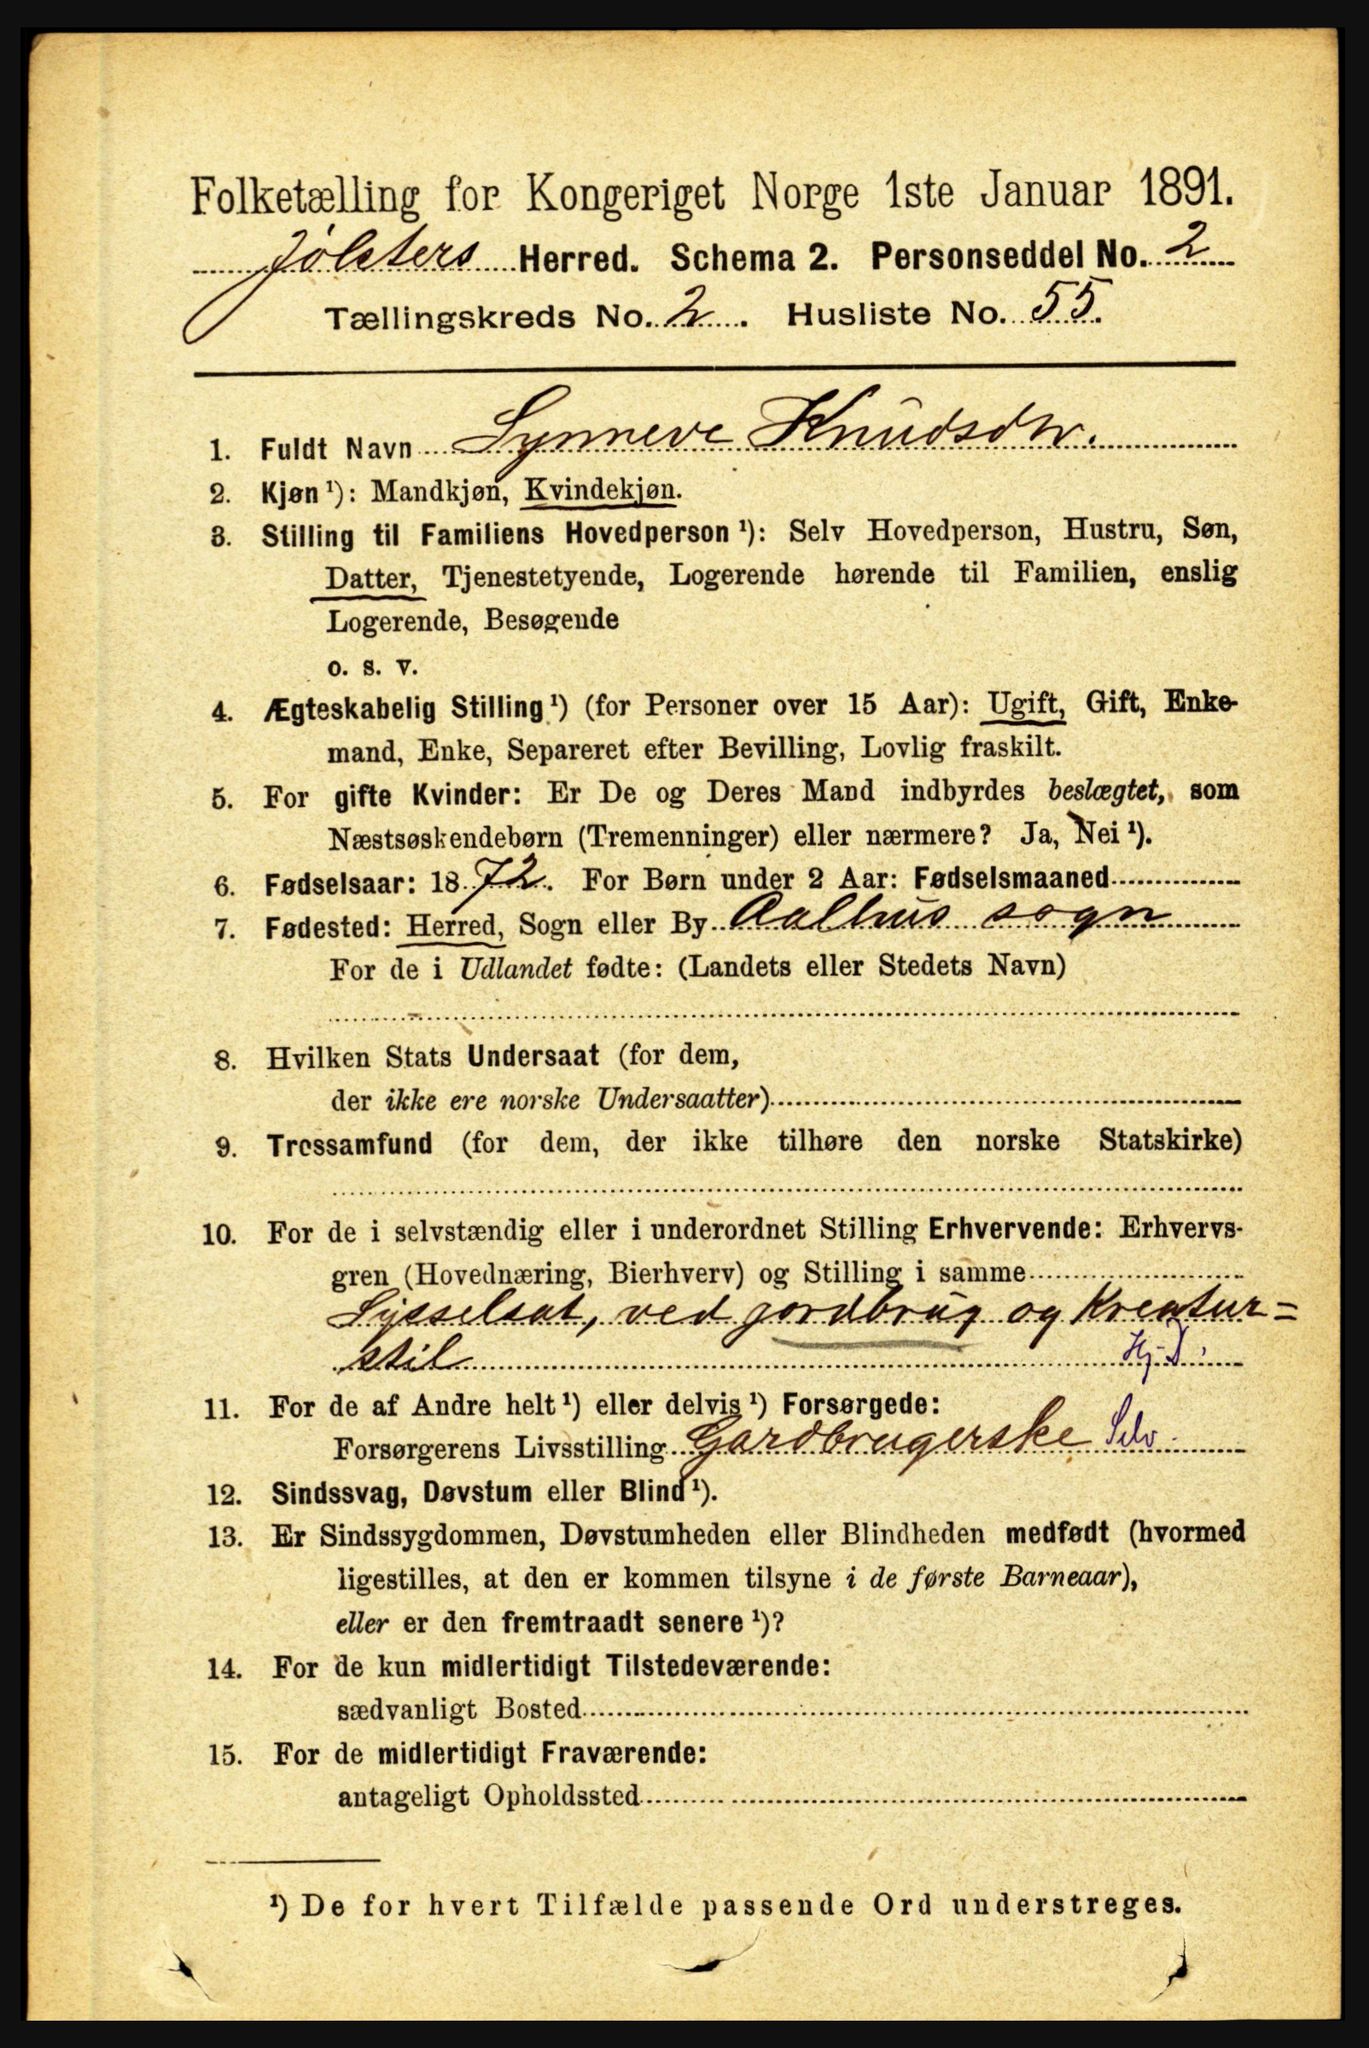 Folketælling for Kongeriget Norge 1ste Januar 1891.
Jølsters Herred. Schema 2. Personseddel No. 2
Tællingskreds No. 2. Husliste No. 55.
1. Fuldt Navn Synneve Knudsdtr.
2. Kjøn ¹): Mandkjøn, Kvindekjøn.
3. Stilling til Familiens Hovedperson ¹): Selv Hovedperson, Hustru, Søn,
Datter, Tjenestetyende, Logerende hørende til Familien, enslig
Logerende, Besøgende
o. s. v.
4. Ægteskabelig Stilling ¹) (for Personer over 15 Aar): Ugift, Gift, Enke-
mand, Enke, Separeret efter Bevilling, Lovlig fraskilt.
5. For gifte Kvinder: Er De og Deres Mand indbyrdes beslægtet, som
Næstsøskendebørn (Tremenninger) eller nærmere? Ja, Nei ¹).
6. Fødselsaar: 1872. For Børn under 2 Aar: Fødselsmaaned
7. Fødested: Herred, Sogn eller By Aalhus sogn
For de i Udlandet fødte: (Landets eller Stedets Navn)
8. Hvilken Stats Undersaat (for dem,
der ikke ere norske Undersaatter)
9. Trossamfund (for dem, der ikke tilhøre den norske Statskirke)
10. For de i selvstændig eller i underordnet Stilling Erhvervende: Erhvervs-
gren (Hovednæring, Bierhverv) og Stilling i samme
Sysselsat, ved jordbrug og Kreatur=
stil Hj. D.
11. For de af Andre helt ¹) eller delvis ¹) Forsørgede:
Forsørgerens Livsstilling Gardbrugerske Selv
12. Sindssvag, Døvstum eller Blind ¹).
13. Er Sindssygdommen, Døvstumheden eller Blindheden medfødt (hvormed
ligestilles, at den er kommen tilsyne i de første Barneaar),
eller er den fremtraadt senere ¹)?
14. For de kun midlertidigt Tilstedeværende:
sædvanligt Bosted
15. For de midlertidigt Fraværende:
antageligt Opholdssted
¹) De for hvert Tilfælde passende Ord understreges.